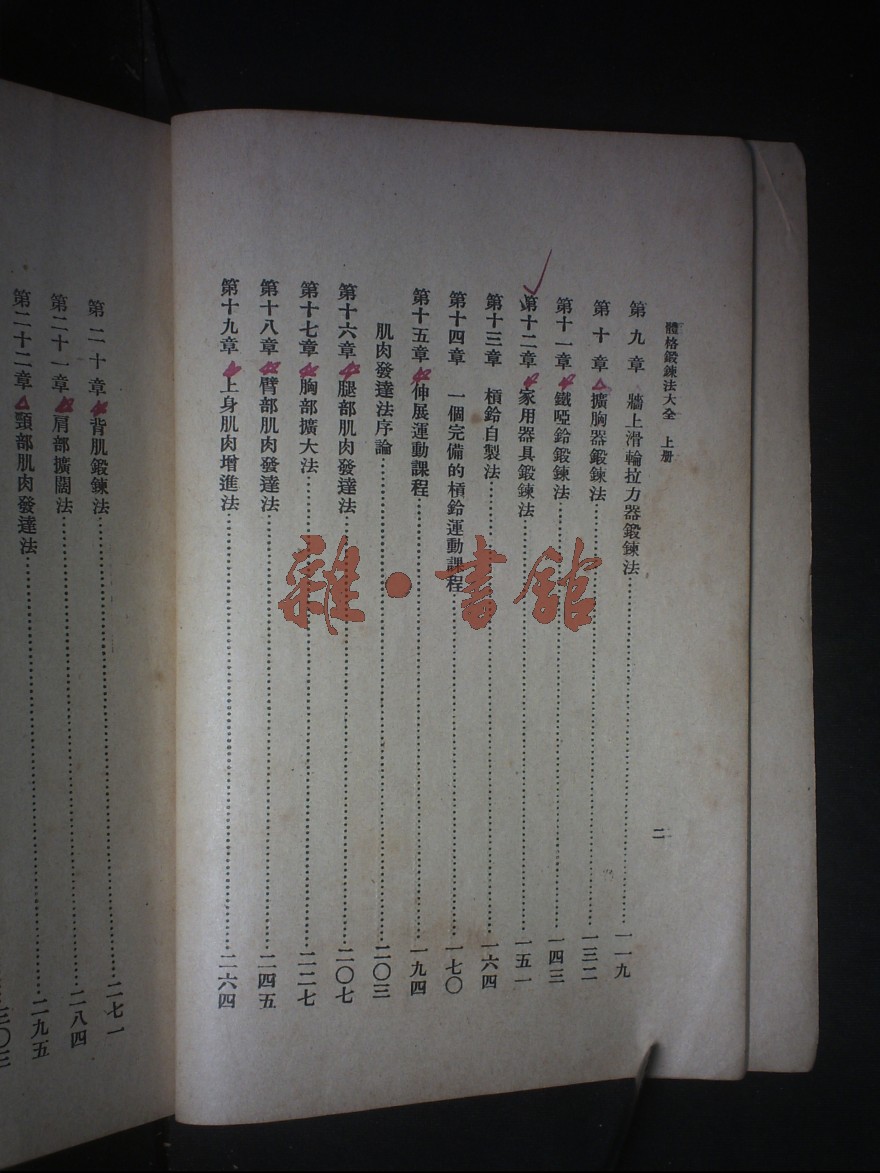 體格鍛鍊法大全 上册
二
第九章 牆上滑輪拉力器鍛鍊法……一一九
第十章 擴胸器鍛鍊法……一三二
第十一章 鐵啞鈴鍛鍊法……一四三
第十二章 家用器具鍛鍊法……一五一
第十三章 槓鈴自製法……一六四
第十四章 一個完備的槓鈴運動課程……一七〇
第十五章 伸展運動課程……一九四
肌肉發達法序論……二〇三
第十六章 腿部肌肉發達法……二〇七
第十七章 胸部擴大法……二二七
第十八章 臂部肌肉發達法……二四五
第十九章 上身肌肉增進法……二六四
第二十章 背肌鍛鍊法……二七一
第二十一章 肩部擴闊法……二八四
第二十二章 頸部肌肉發達法……二九五
三〇三
雜·書館